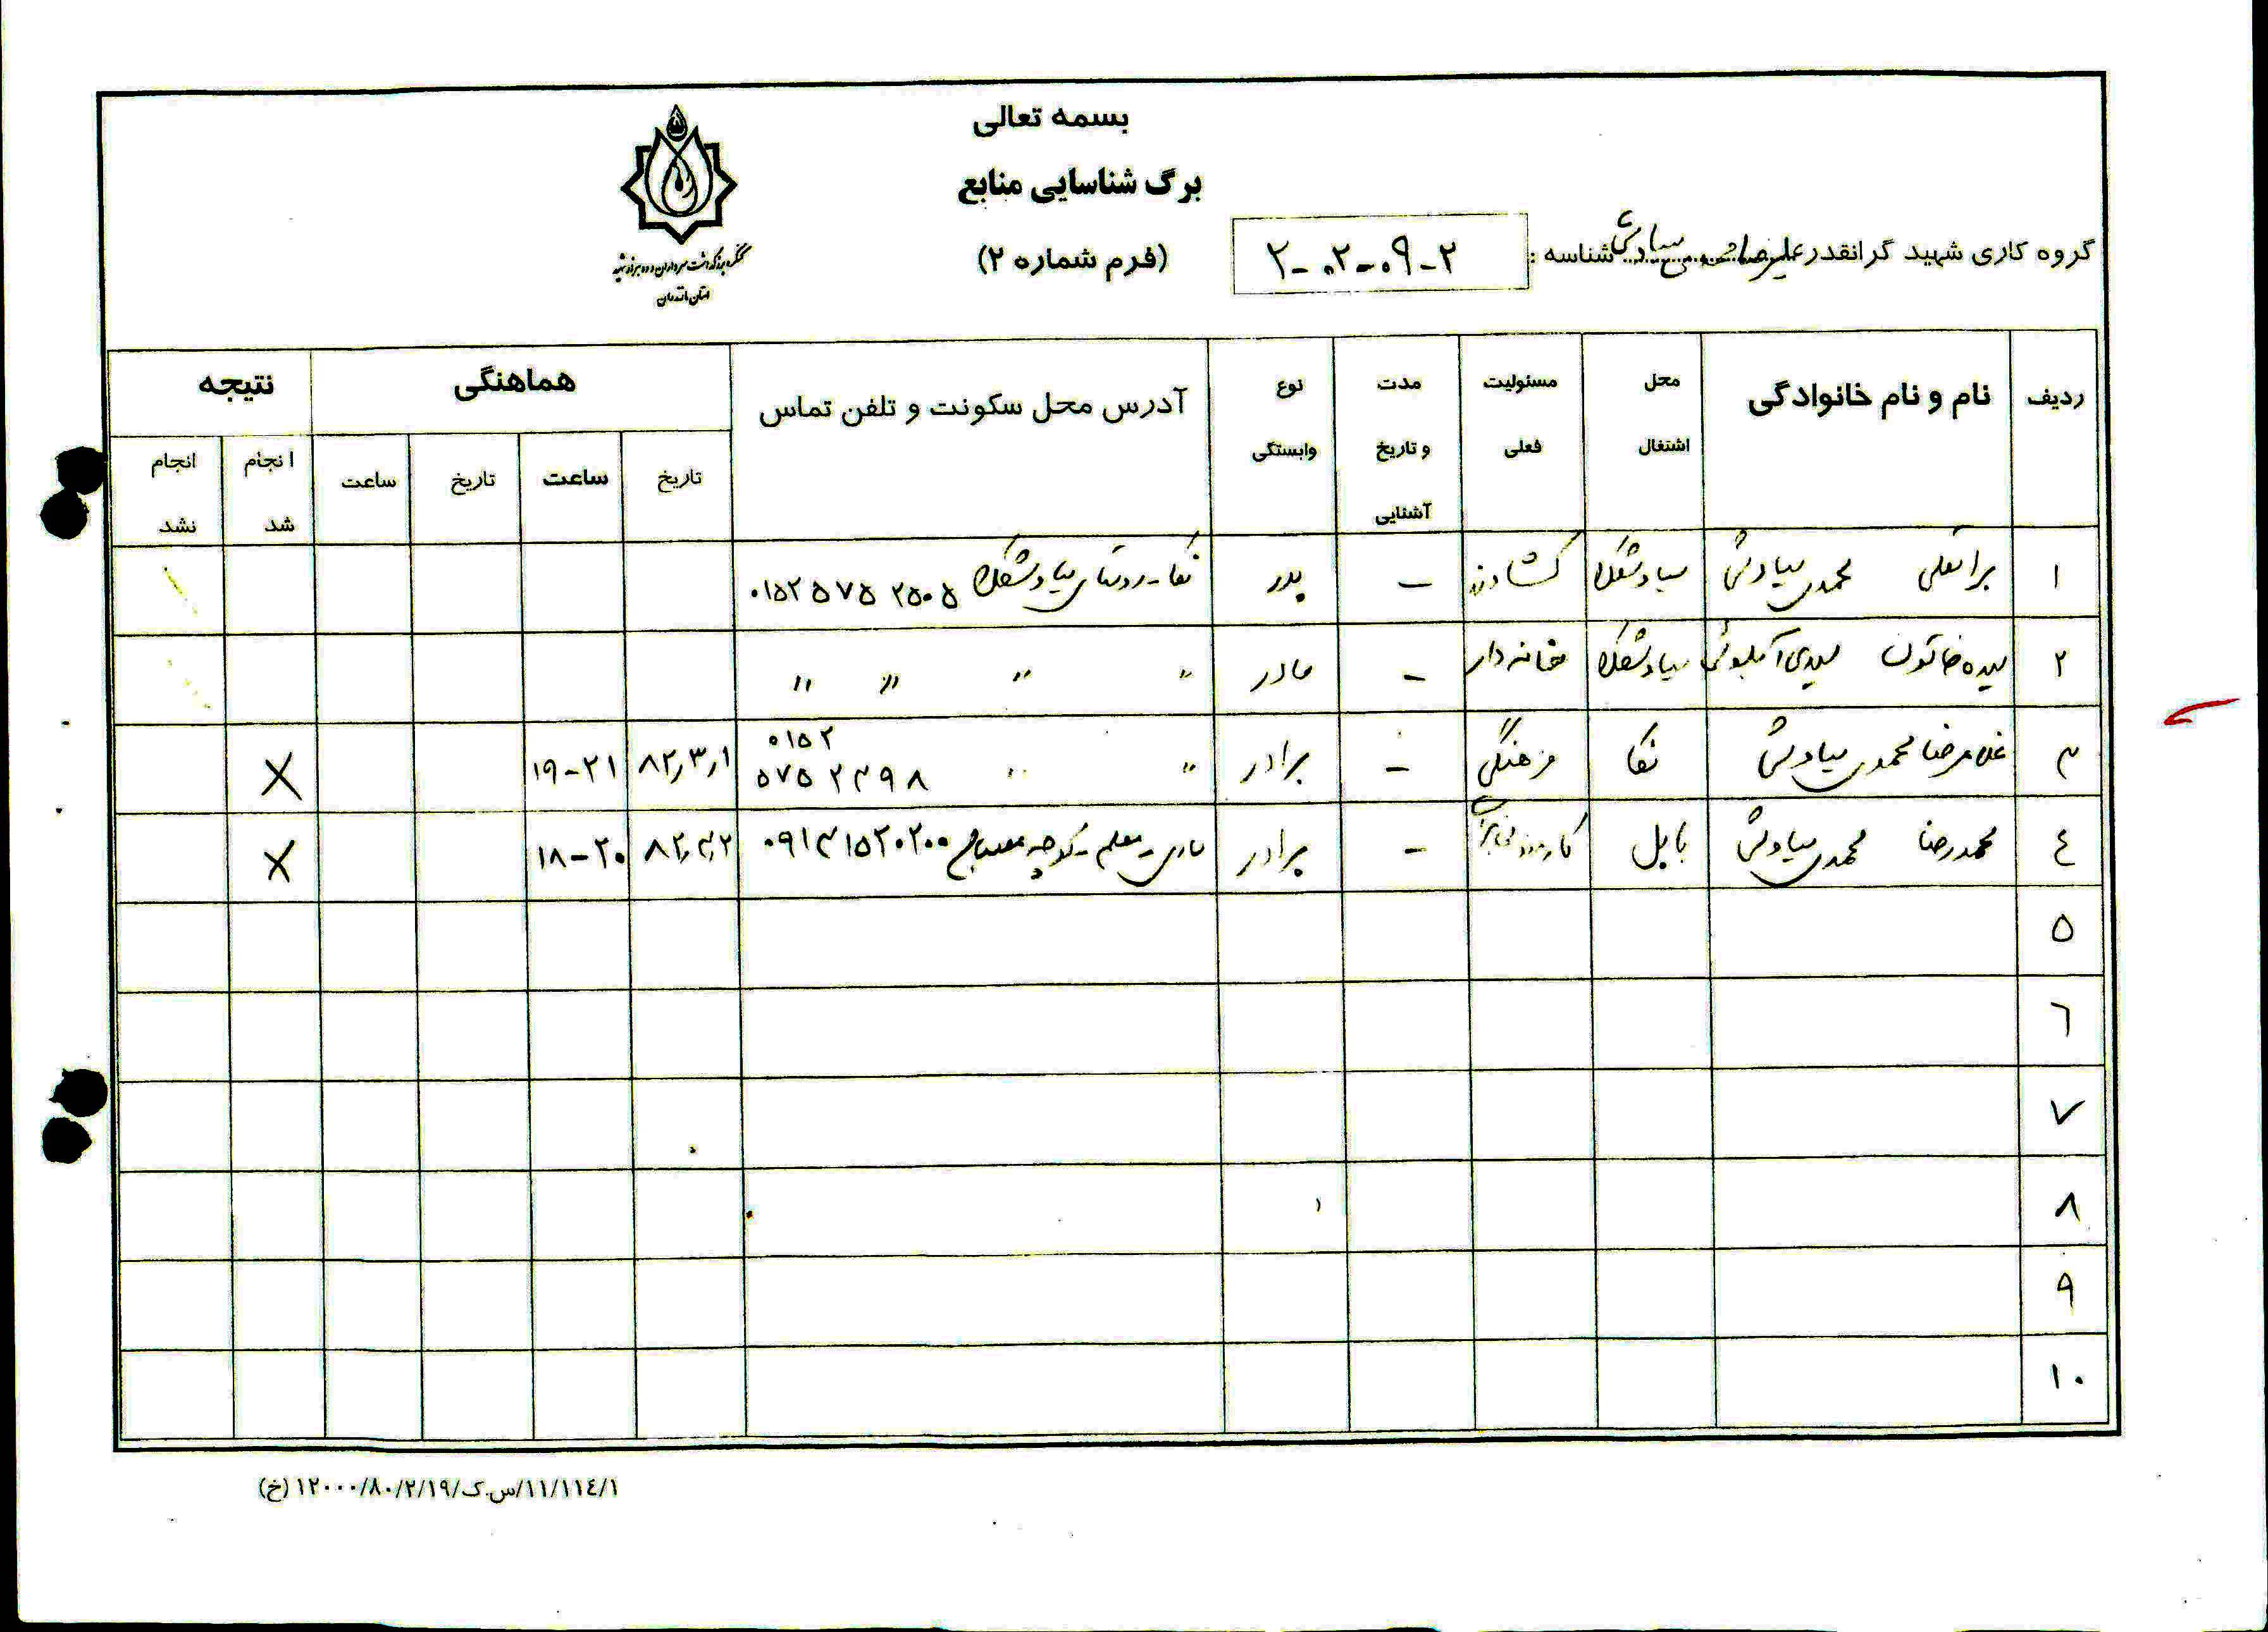 بسمه تعالی
برگ شناسایی منابع
(فرم شماره ۲)
گروه کاری شهید گرانقدر علیرضا محمدی سیاوشی شناسه : ۲-۰۹-۰۲-۲
کنگره بزرگداشت سرداران و ده هزار شهید
استان مازندران
ردیف نام و نام خانوادگی محل اشتغال مسئولیت فعلی مدت و تاریخ آشنایی نوع وابستگی آدرس محل سکونت و تلفن تماس هماهنگی نتیجه
تاریخ ساعت تاریخ ساعت انجام شد انجام نشد
۱ براتعلی محمدی سیاوشی سیاوشکلا کشاورز - پدر نکا - روستای سیاوشکلا ۰۱۵۲۵۷۵۲۵۰۵
۲ سیده خاتون سیدی آبلوئی سیاوشکلا خانه دار - مادر " " " "
۳ غلامرضا محمدی سیاوشی نکا فرهنگی - برادر " " ۰۱۵۲ ۵۷۵۲۳۹۸ ۸۲٫۳٫۱ ۱۹-۲۱ X
٤ محمدرضا محمدی سیاوشی بابل کارمند - برادر ساری - معلم - کوچه ۰۹۱۳۱۵۲۰۲۰۰ ۸۲٫۳٫۲ ۱۸-۲۰ X
۵
٦
۷
۸
۹
۱۰
۱۱/۱۱٤/۱/س.ک/۱۲۰۰۰/۸۰/۲/۱۹ (خ)